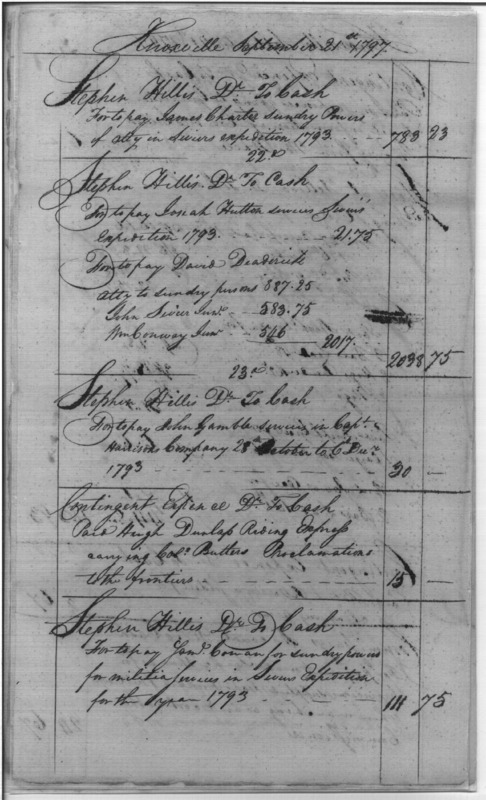 Knoxville September 21st 1797
Stephen Hillis Dr To Cash
For to pay James Charter sundry Powers
of atty in Seviers expedition 1793 783 23
22d
Stephen Hillis Dr To Cash
For to pay Josiah Hutton services Seviers
Expedition 1793 21.75
For to pay David Deaderick
atty to sundry persons 887.25
John Sevier Junr 583.75
Wm Conway Junr 546 2017.
2038 75
23d
Stephen Hillis Dr To Cash
For to pay John Gamble services in Capt.
Harrisons Company 28th October to 6 Decr
1793 30 —
Contingent Expence Dr To Cash
Paid Hugh Dunlap Riding Express
carrying Colo Butlers Proclamations
to the frontiers 15 —
Stephen Hillis Dr To Cash
For to pay Cowan for sundry powers
for militia services in Seviers Expedition
for the year 1793 111 75